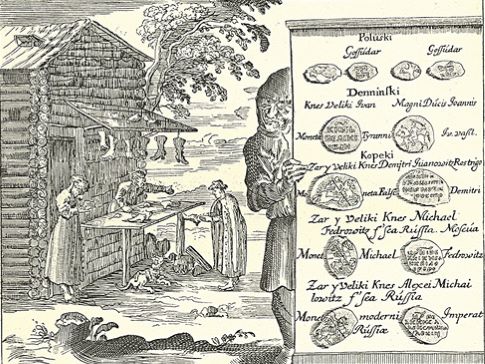 Poluski
Gossudar Gossudar
Denninski
Knes Veliki Ivan Magni Ducis Ioannis
Moneta Tyranni Iv. vasil.
Kopeki
Zar y Veliki Knes Demitri Iuanowitz
Moneta Falsi Demitri
Zar y Veliki Knes Michael
Fedrowitz f'sea Russia. Moscua
Monet Michael Fedrowitz
Zar y Veliki Knes Alexei Michai
lowitz f'sea Russia
Monet moderni Imperat
Russiæ